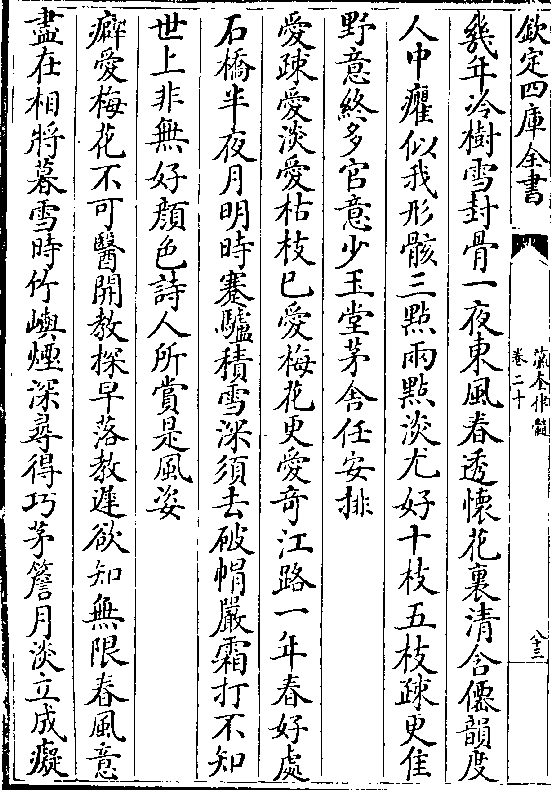 欽定四庫全書
瀛奎律髓
卷二十
八十三
幾年冷樹雪封骨一夜東風春透懷花裏清含僊韻度
人中癯似我形骸三點兩點淡尤好十枝五枝疎更佳
野意終多官意少玉堂茅舍任安排
愛疎愛淡愛枯枝已愛梅花更愛竒江路一年春好處
石橋半夜月明時蹇驢積雪深須去破帽嚴霜打不知
世上非無好顔色詩人所賞是風姿
癖愛梅花不可醫開教探早落教遲欲知無限春風意
盡在相將暮雪時竹嶼煙深尋得巧茅簷月淡立成癡